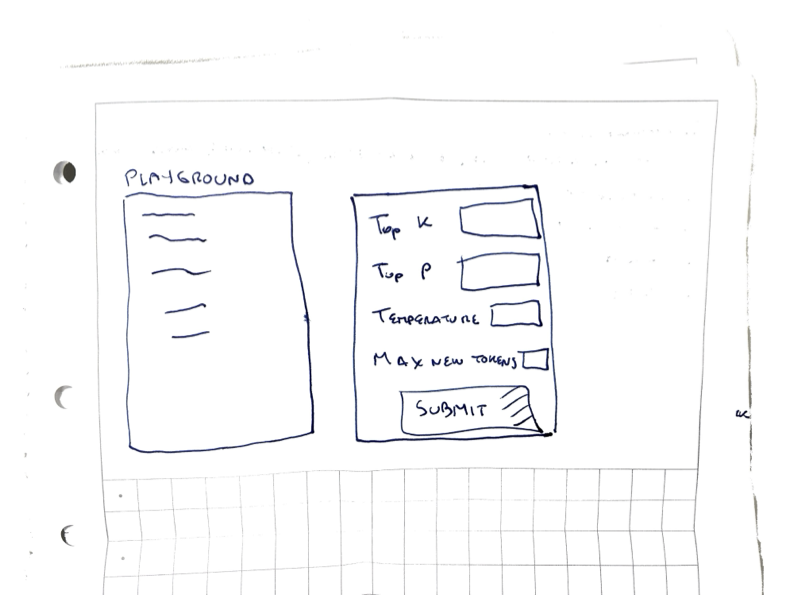 PLAYGROUND
Top K
Top P
TEMPERATURE
MAX NEW TOKENS
SUBMIT